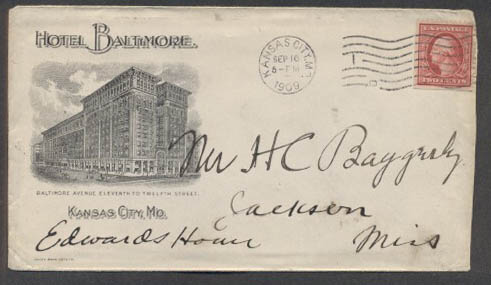 HOTEL BALTIMORE.
KANSAS CITY, MO.
SEP 16
5-PM
1909
U.S. POSTAGE
TWO CENTS
BALTIMORE AVENUE ELEVENTH TO TWELFTH STREET.
KANSAS CITY, MO.
Mr H C
Jackson
Edwards House Miss